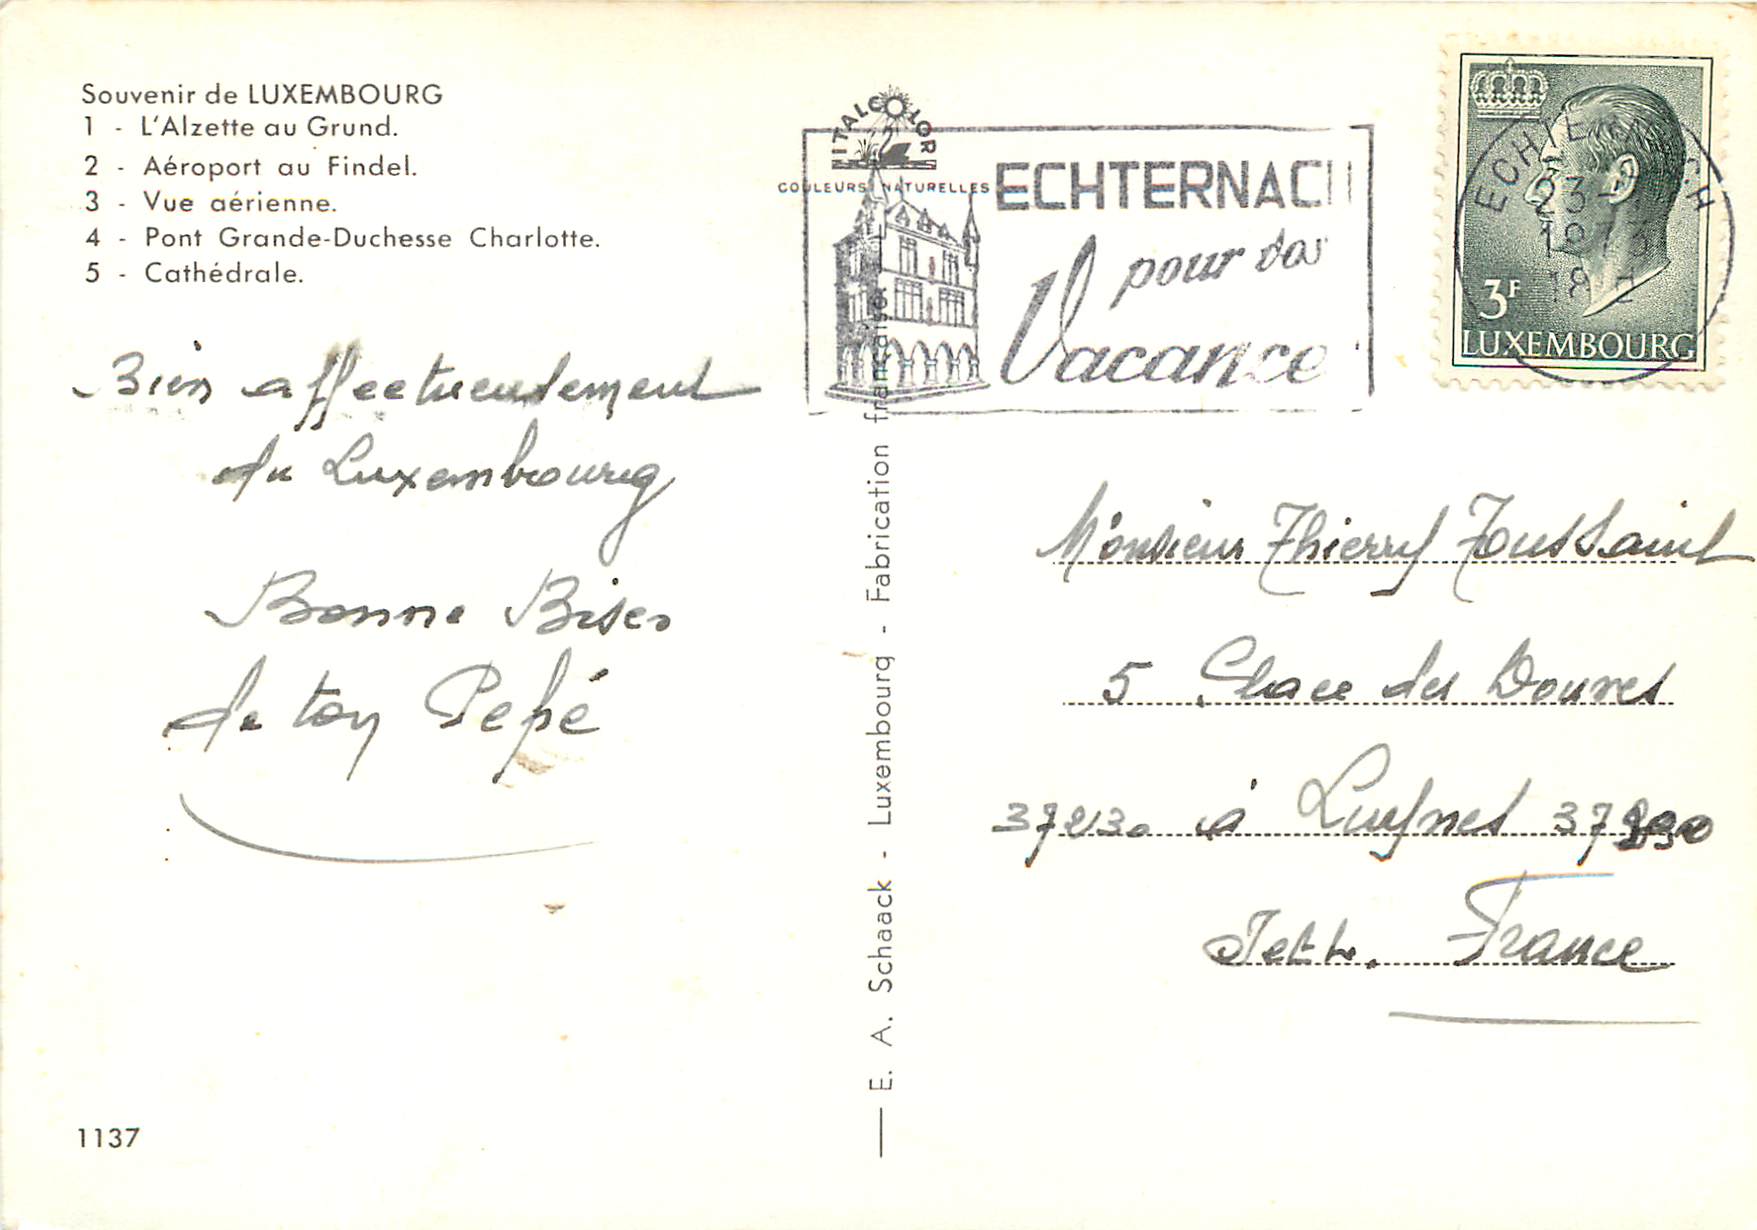 Souvenir de LUXEMBOURG
1 - L'Alzette au Grund.
2 - Aéroport au Findel.
3 - Vue aérienne.
4 - Pont Grande-Duchesse Charlotte.
5 - Cathédrale.
Bien affectueusement
du Luxembourg
Bonne Bises
de ton Pépé
1137
E. A. Schaack - Luxembourg - Fabrication française
ITALCOLOR
COULEURS NATURELLES
ECHTERNACH
pour vos
Vacances
ECHTERNACH
23-
1973
18
3F
LUXEMBOURG
Monsieur Thierry Toussaint
5 Place des Douves
37230 à Luynes 37230
I et L. France